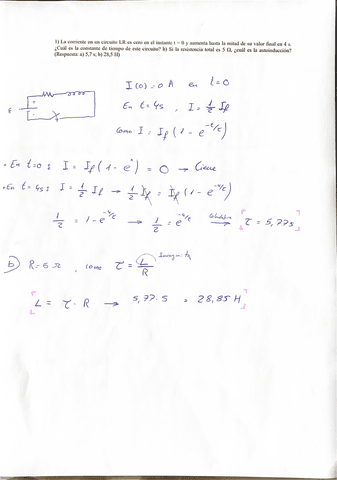 1) La corriente en un circuito LR es cero en el instante t = 0 y aumenta hasta la mitad de su valor final en 4 s.
¿Cuál es la constante de tiempo de este circuito? b) Si la resistencia total es 5 Ω, ¿cuál es la autoinducción?
(Respuesta: a) 5,7 s; b) 28,5 H)
I(0) = 0 A en t=0
En t=4s , I = 1/2 If
ε
Como I = If (1 - e^-t/τ)
• En t=0 : I = If (1 - e^0) = 0 →
• En t = 4s : I = 1/2 If → 1/2 If = If (1 - e^-4/τ)
1/2 = 1 - e^-4/τ → 1/2 = e^-4/τ → τ = 5,77s
b) R=5 Ω , como τ = L/R
L = τ · R → 5,77 · 5 = 28,85 H